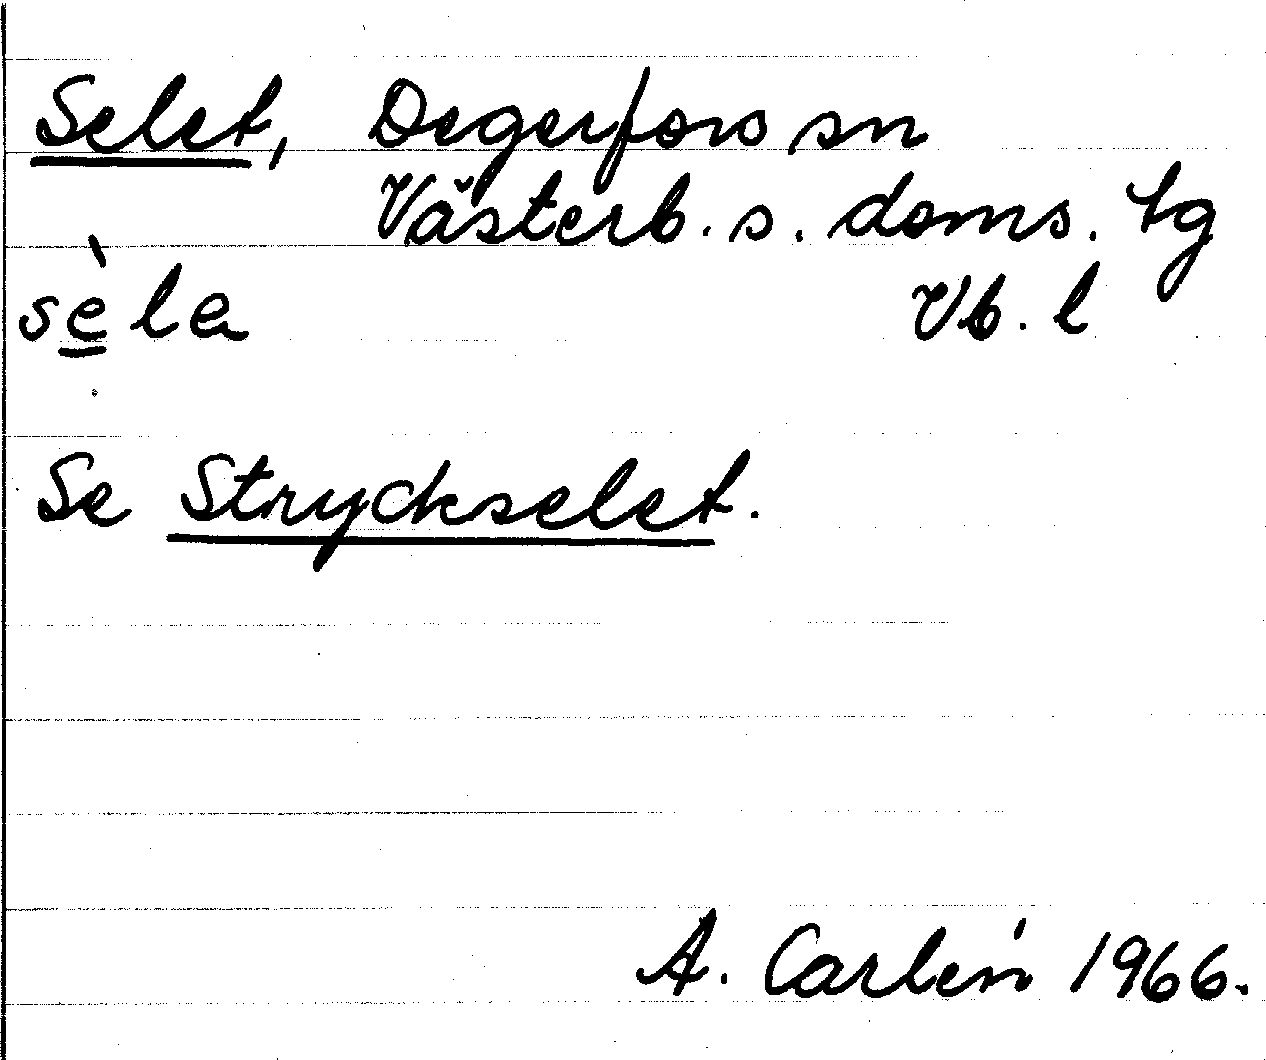 Selet, Degerfors sn
Västerb. s. doms. tg
sèla Vb. l
Se Stryckselet.
A. Carlén 1966.